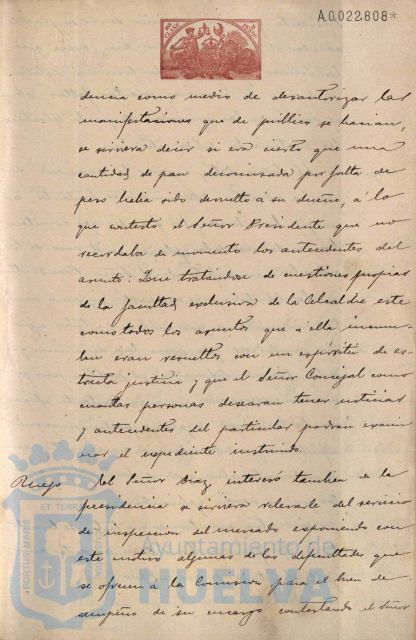 A.0.022.808*
dencia como medio de desautorizar las
manifestaciones que de público se hacian,
se sirviera decir si era cierto que una
cantidad de pan decomisada por falta de
peso habia sido devuelto á su dueño, á lo
que contestó el Señor Presidente que no
recordaba de momento los antecedentes del
asunto: Que tratándose de cuestiones propias
de la facultad exclusiva de la Alcaldia este
como todos los asuntos que á ella incum-
ben eran resueltos con un espíritu de es-
tricta justicia y que el Señor Concejal como
cuantas personas desearan tener noticias
y antecedentes del particular podrán exami
nar el espediente instruido.
Ruego El Señor Diaz interesó tambien de la
presidencia se sirviera relevarle del servicio
de inspeccion del mercado esponiendo con
este motivo algunas de las dificultades que
se ofrecen á la Comision para el buen de-
sempeño de su encargo contestando el Señor
PORTUS MARIS ET TERR
Ayuntamiento de
HUELVA